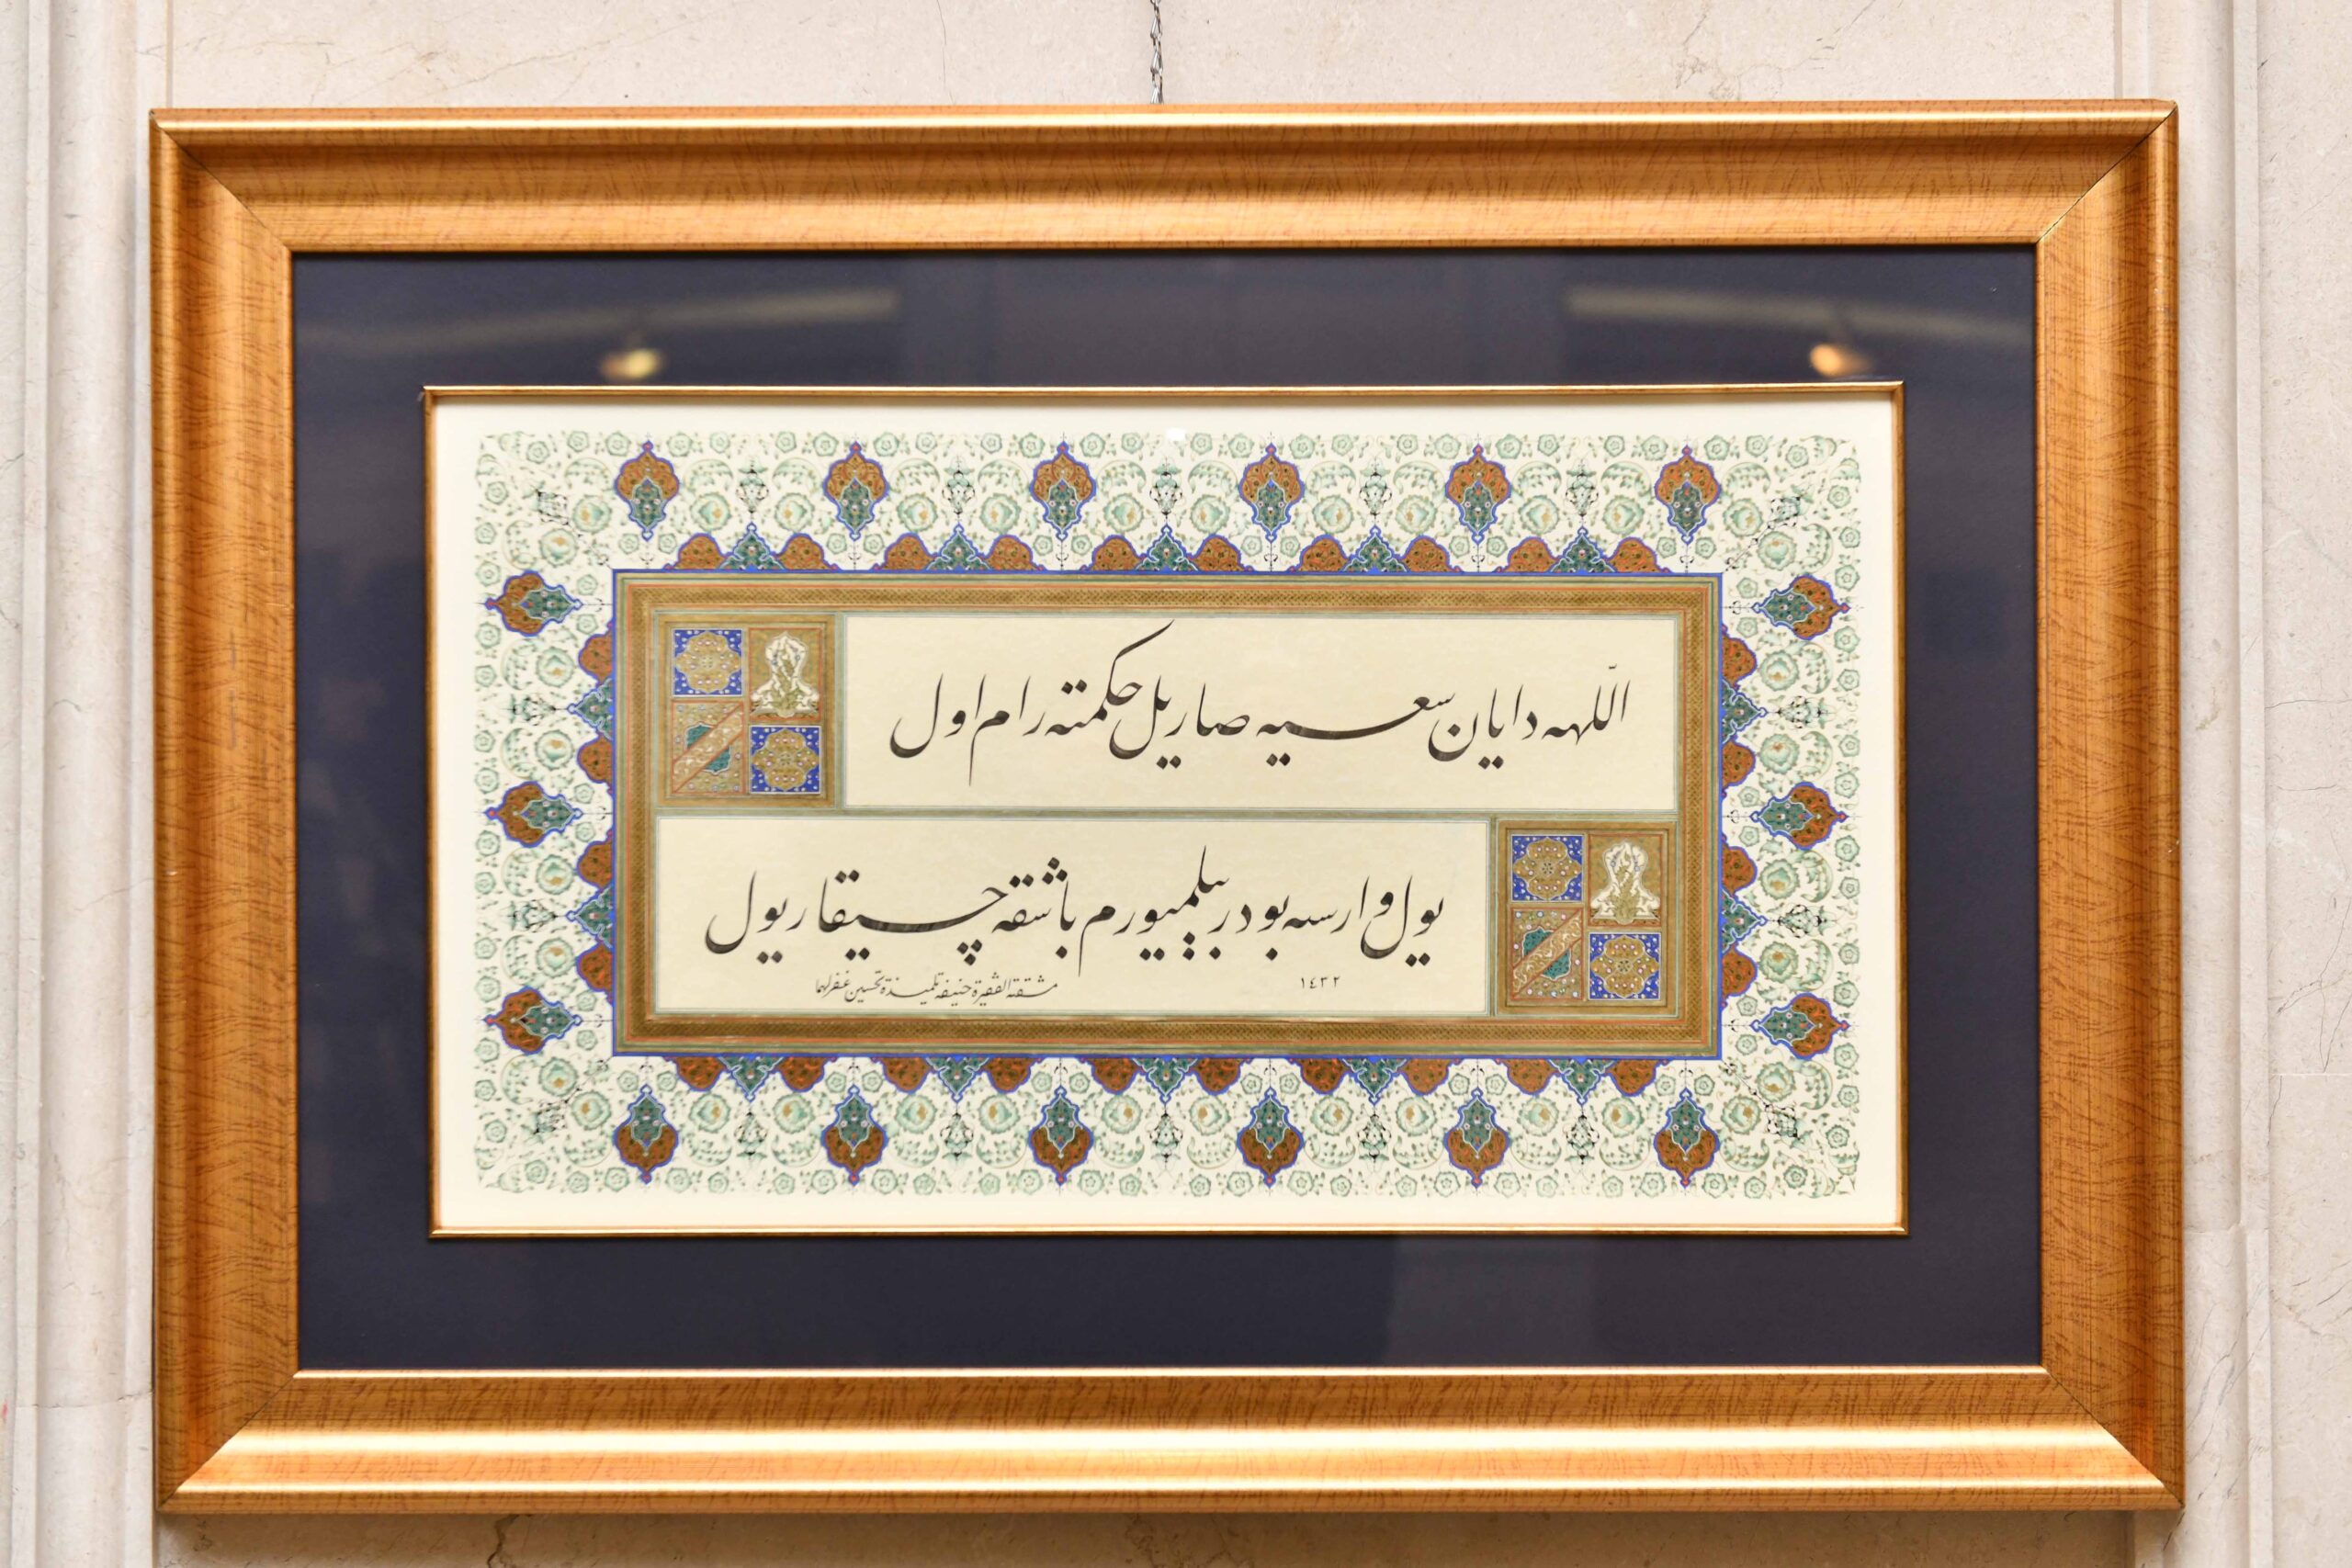 اللّٰهه دایان سعیه صاریل حکمته رام اول
یول وارسه بودر بیلمیورم باشقه چیقار یول
١٤٣٢
مشقته الفقیرة حنیفه تلمیذة تحسین غفرلهما